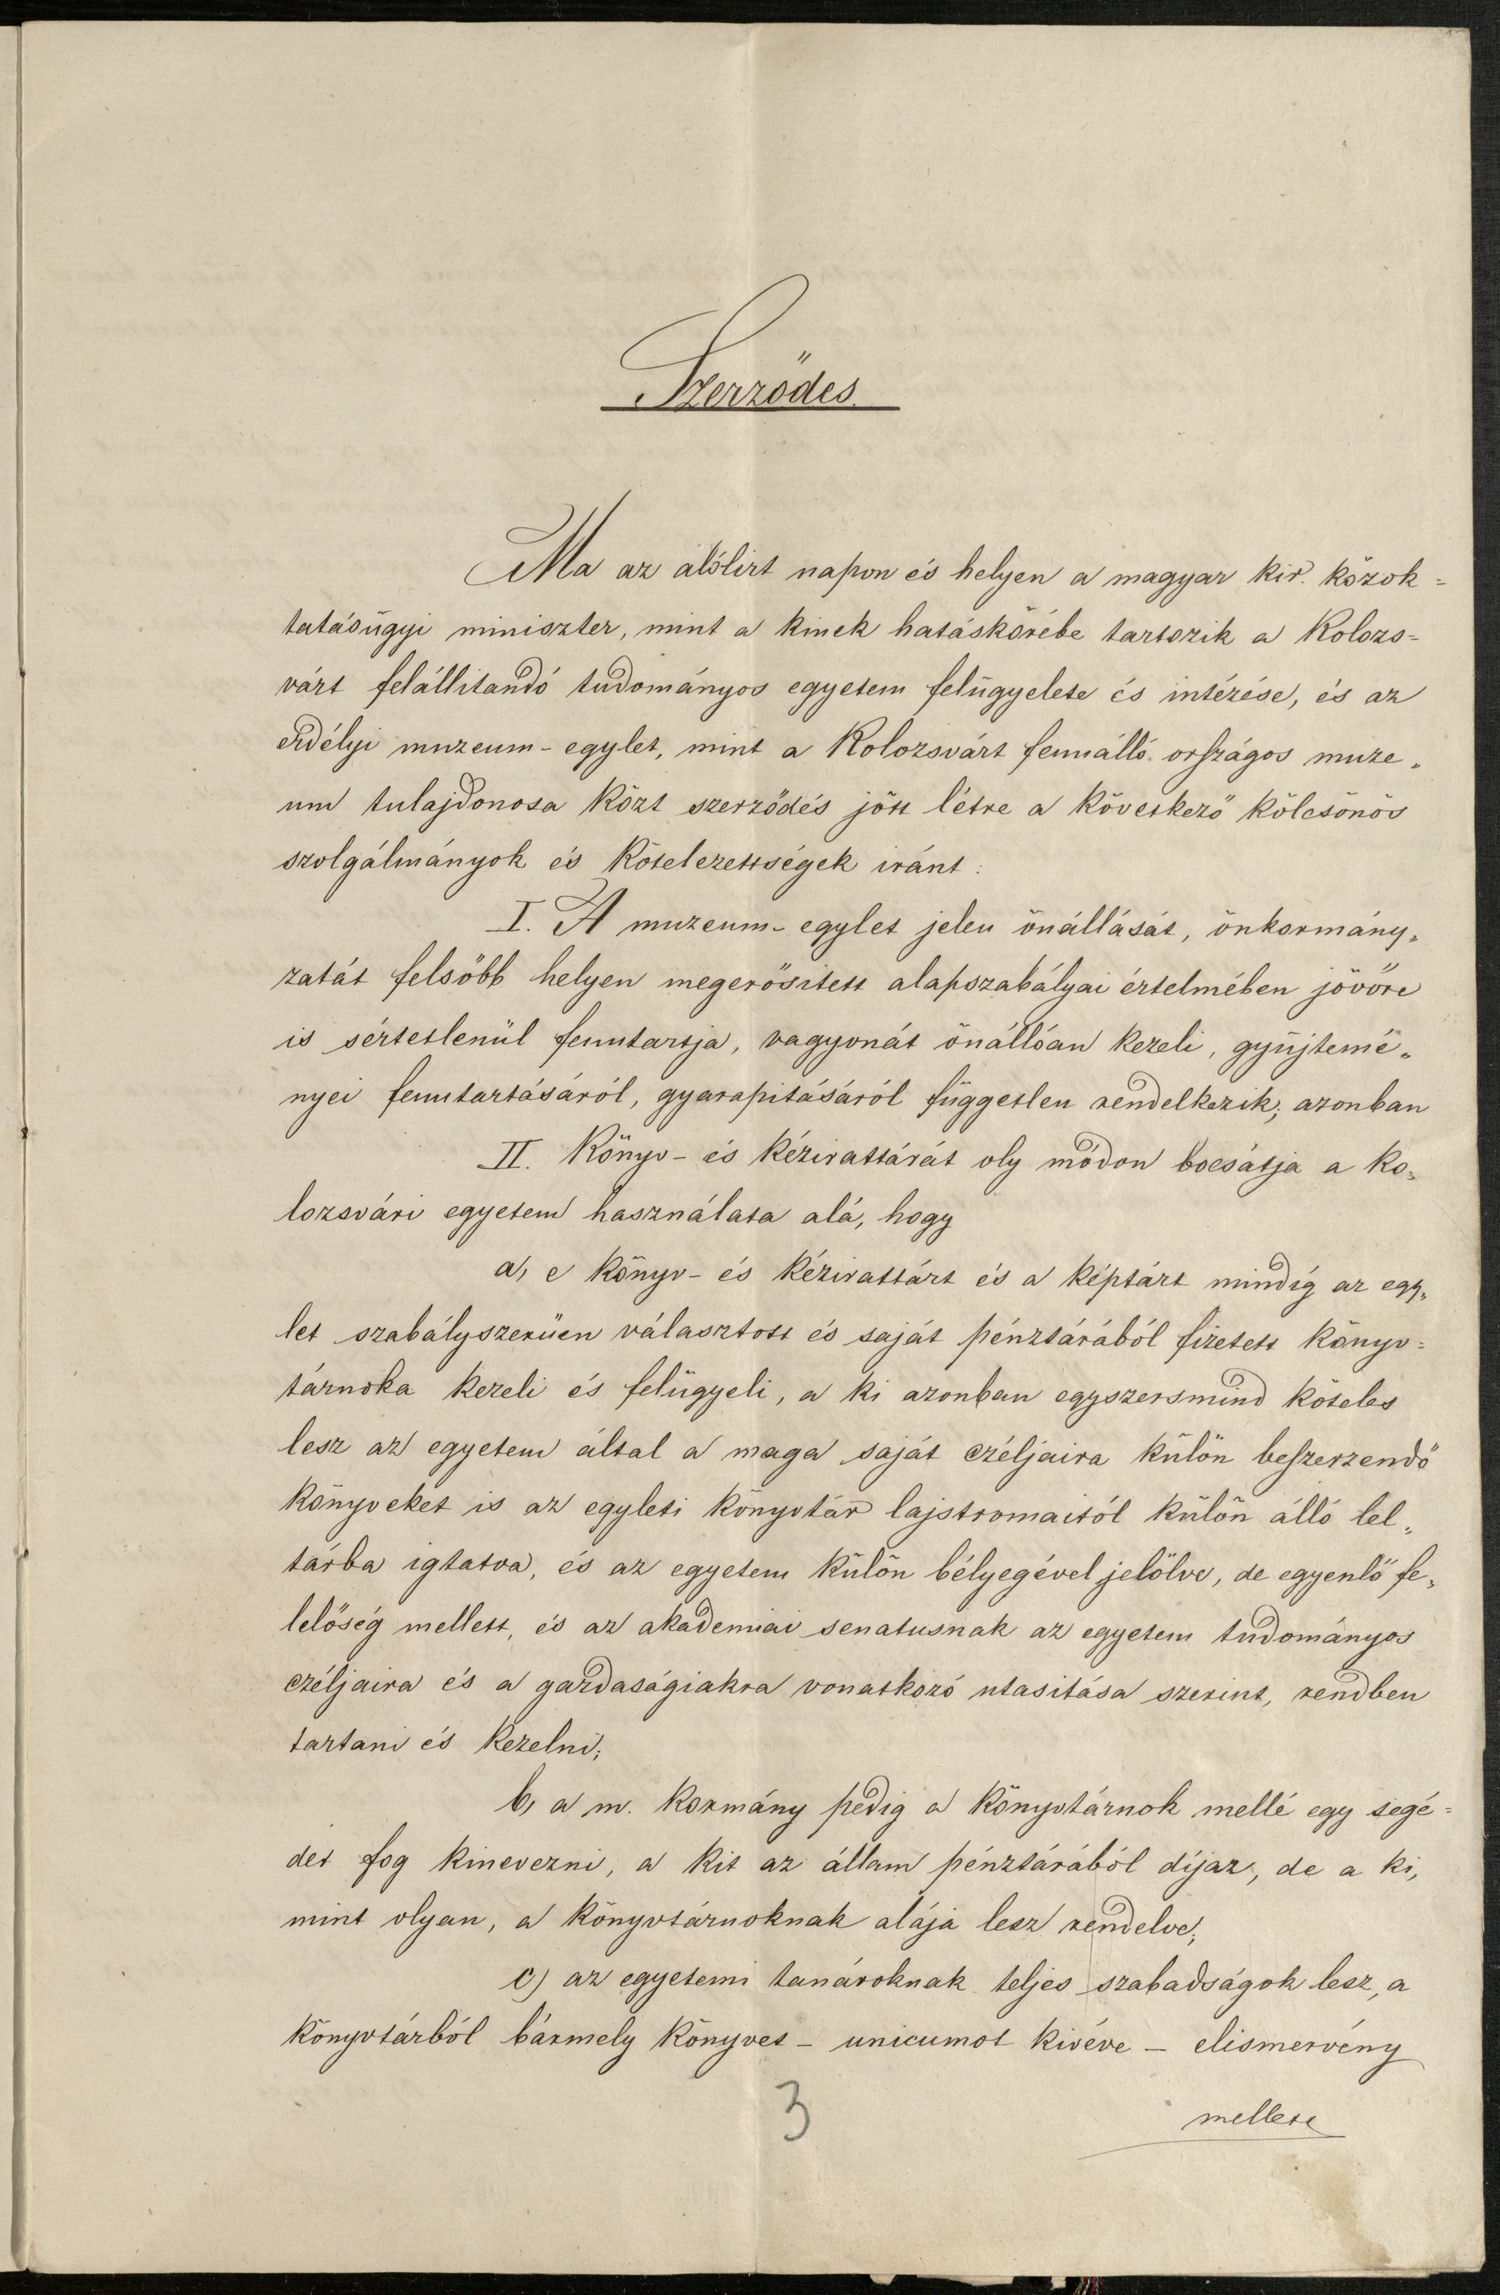 Szerződés.
Ma az alólirt napon és helyen a magyar kir. közok=
tatásügyi miniszter, mint a kinek hatáskörébe tartozik a Kolozs=
várt felállitandó tudományos egyetem felügyelete és intézése, és az
erdélyi muzeum-egylet, mint a Kolozsvárt fennálló országos muze„
um tulajdonosa közt szerződés jött létre a következő kölcsönös
szolgálmányok és kötelezettségek iránt:
I. A muzeum-egylet jelen önállását, önkormány„
zatát felsőbb helyen megerősitett alapszabályai értelmében jövőre
is sértetlenül fenntartja, vagyonát önállóan kezeli, gyüjtemé„
nyei fenntartásáról, gyarapitásáról független rendelkezik; azonban
II. Könyv- és kézirattárát oly módon bocsátja a ko„
lozsvári egyetem használata alá, hogy
a, e könyv- és kézirattárt és a képtárt mindig az egy„
let szabályszerüen választott és saját pénztárából fizetett könyv=
tárnoka kezeli és felügyeli, a ki azonban egyszersmind köteles
lesz az egyetem által a maga saját czéljaira külön beszerzendő
könyveket is az egyleti könyvtár lajstromaitól külön álló lel„
tárba igtatva, és az egyetem külön bélyegével jelölve, de egyenlő fe„
lelőség mellett, és az akademiai senatusnak az egyetem tudományos
czéljaira és a gazdaságiakra vonatkozó utasitása szerint, rendben
tartani és kezelni;
b, a m. kormány pedig a könyvtárnok mellé egy segé=
det fog kinevezni, a kit az állam pénztárából díjaz, de a ki,
mint olyan, a könyvtárnoknak alája lesz rendelve;
c) az egyetemi tanároknak teljes szabadságok lesz, a
könyvtárból bármely könyvet - unicumot kivéve - elismervény
mellett
3